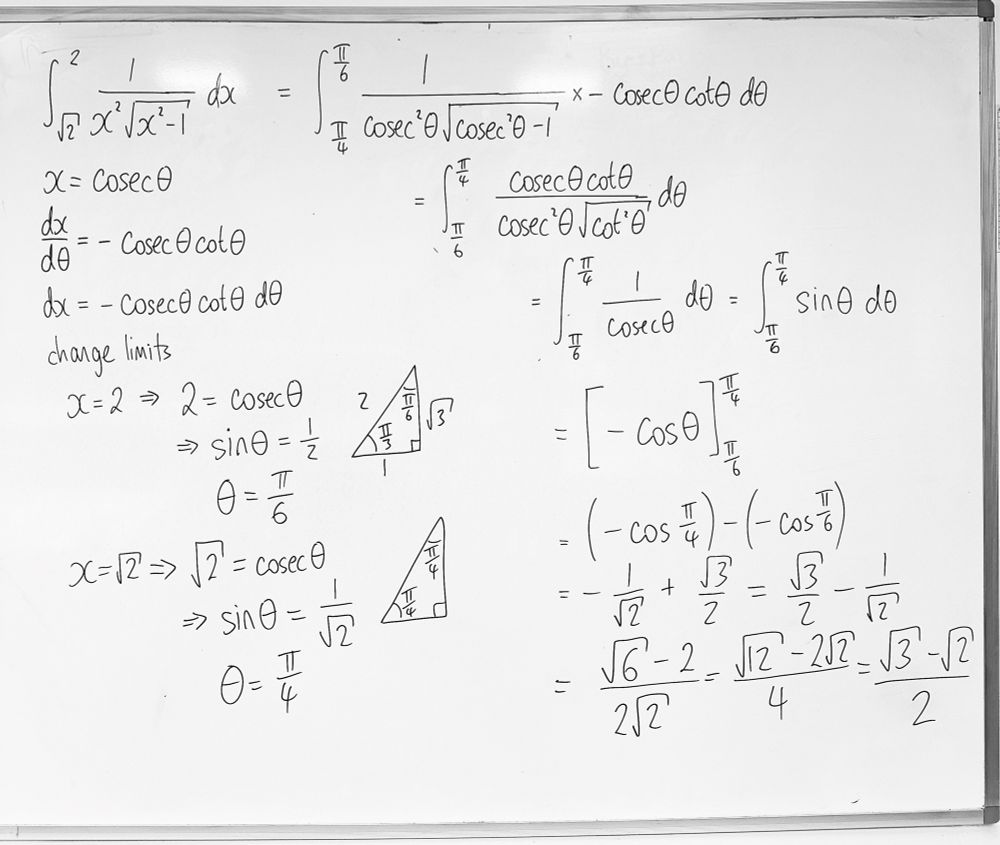 ∫_{√2}^{2} 1/(x²√(x²-1)) dx = ∫_{π/4}^{π/6} 1/(cosec²θ√(cosec²θ-1)) × - cosecθ cotθ dθ
x = cosecθ
dx/dθ = - cosecθ cotθ
dx = - cosecθ cotθ dθ
change limits
x=2 ⇒ 2 = cosecθ
⇒ sinθ = 1/2
θ = π/6
2 π/6 √3 π/3 1
x=√2 ⇒ √2 = cosecθ
⇒ sinθ = 1/√2
θ = π/4
π/4 π/4
= ∫_{π/6}^{π/4} cosecθ cotθ/(cosec²θ√(cot²θ)) dθ
= ∫_{π/6}^{π/4} 1/cosecθ dθ = ∫_{π/6}^{π/4} sinθ dθ
= [- cosθ]_{π/6}^{π/4}
= (- cos π/4) - (- cos π/6)
= - 1/√2 + √3/2 = √3/2 - 1/√2
= (√6 - 2)/(2√2) = (√12 - 2√2)/4 = (√3 - √2)/2